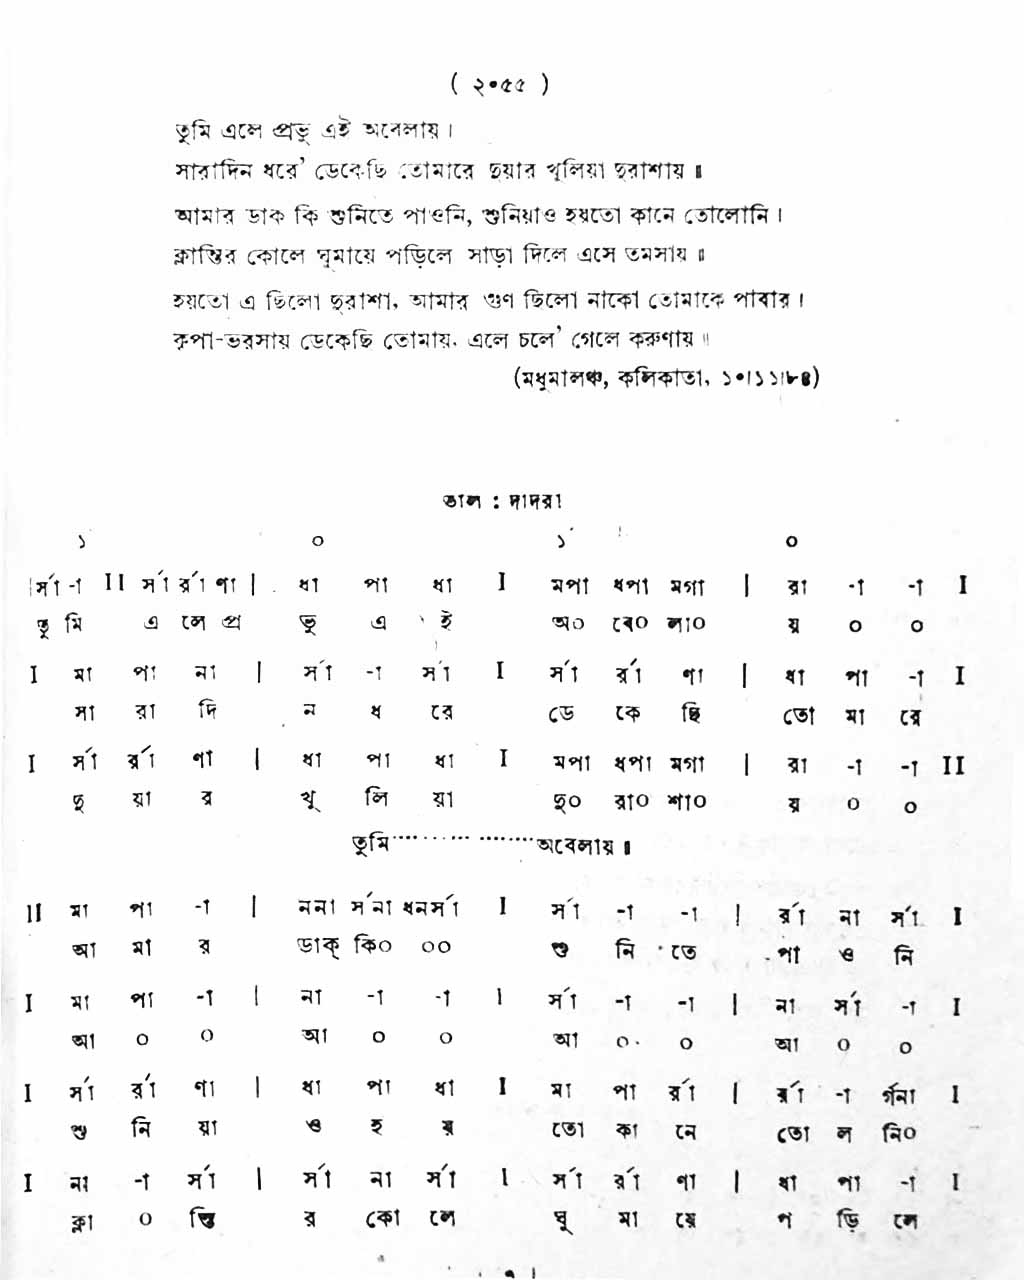 ( ২০৫৫ )
তুমি এলে প্রভু এই অবেলায়।
সারাদিন ধরে' ডেকেছি তোমারে দুয়ার খুলিয়া দুরাশায়॥
আমার ডাক কি শুনিতে পাওনি, শুনিয়াও হয়তো কানে তোলোনি।
ক্লান্তির কোলে ঘুমায়ে পড়িলে সাড়া দিলে এসে তমসায়॥
হয়তো এ ছিলো দুরাশা, আমার গুণ ছিলো নাকো তোমাকে পাবার।
কৃপা-ভরসায় ডেকেছি তোমায়, এলে চলে' গেলে করুণায়॥
(মধুমালঞ্চ, কলিকাতা, ১০।১১।৮৪)
তাল : দাদরা
১´ ০ ১´ ০
।র্সা -া II র্সা র্রা ণা | ধা পা ধা I মপা ধপা মগা | রা -া -া I
তু মি এ লে প্র ভু এ ই অ০ বে০ লা০ য় ০ ০
I মা পা না | র্সা -া র্সা I র্সা র্রা ণা | ধা পা -া I
সা রা দি ন ধ রে ডে কে ছি তো মা রে
I র্সা র্রা ণা | ধা পা ধা I মপা ধপা মগা | রা -া -া II
দু য়া র খু লি য়া দু০ রা০ শা০ য় ০ ০
তুমি.................অবেলায়॥
II মা পা -া | ননা র্সনা ধনর্সা I র্সা -া -া | র্রা না র্সা I
আ মা র ডাক্ কি০ ০০ শু নি তে পা ও নি
I মা পা -া | না -া -া I র্সা -া -া | না র্সা -া I
আ ০ ০ আ ০ ০ আ ০ ০ আ ০ ০
I র্সা র্রা ণা | ধা পা ধা I মা পা র্রা | র্রা -া র্গনা I
শু নি য়া ও হ য় তো কা নে তো ল নি০
I না -া র্সা | র্সা না র্সা I র্সা র্রা ণা | ধা পা -া I
ক্লা ০ ন্তি র কো লে ঘু মা য়ে প ড়ি লে